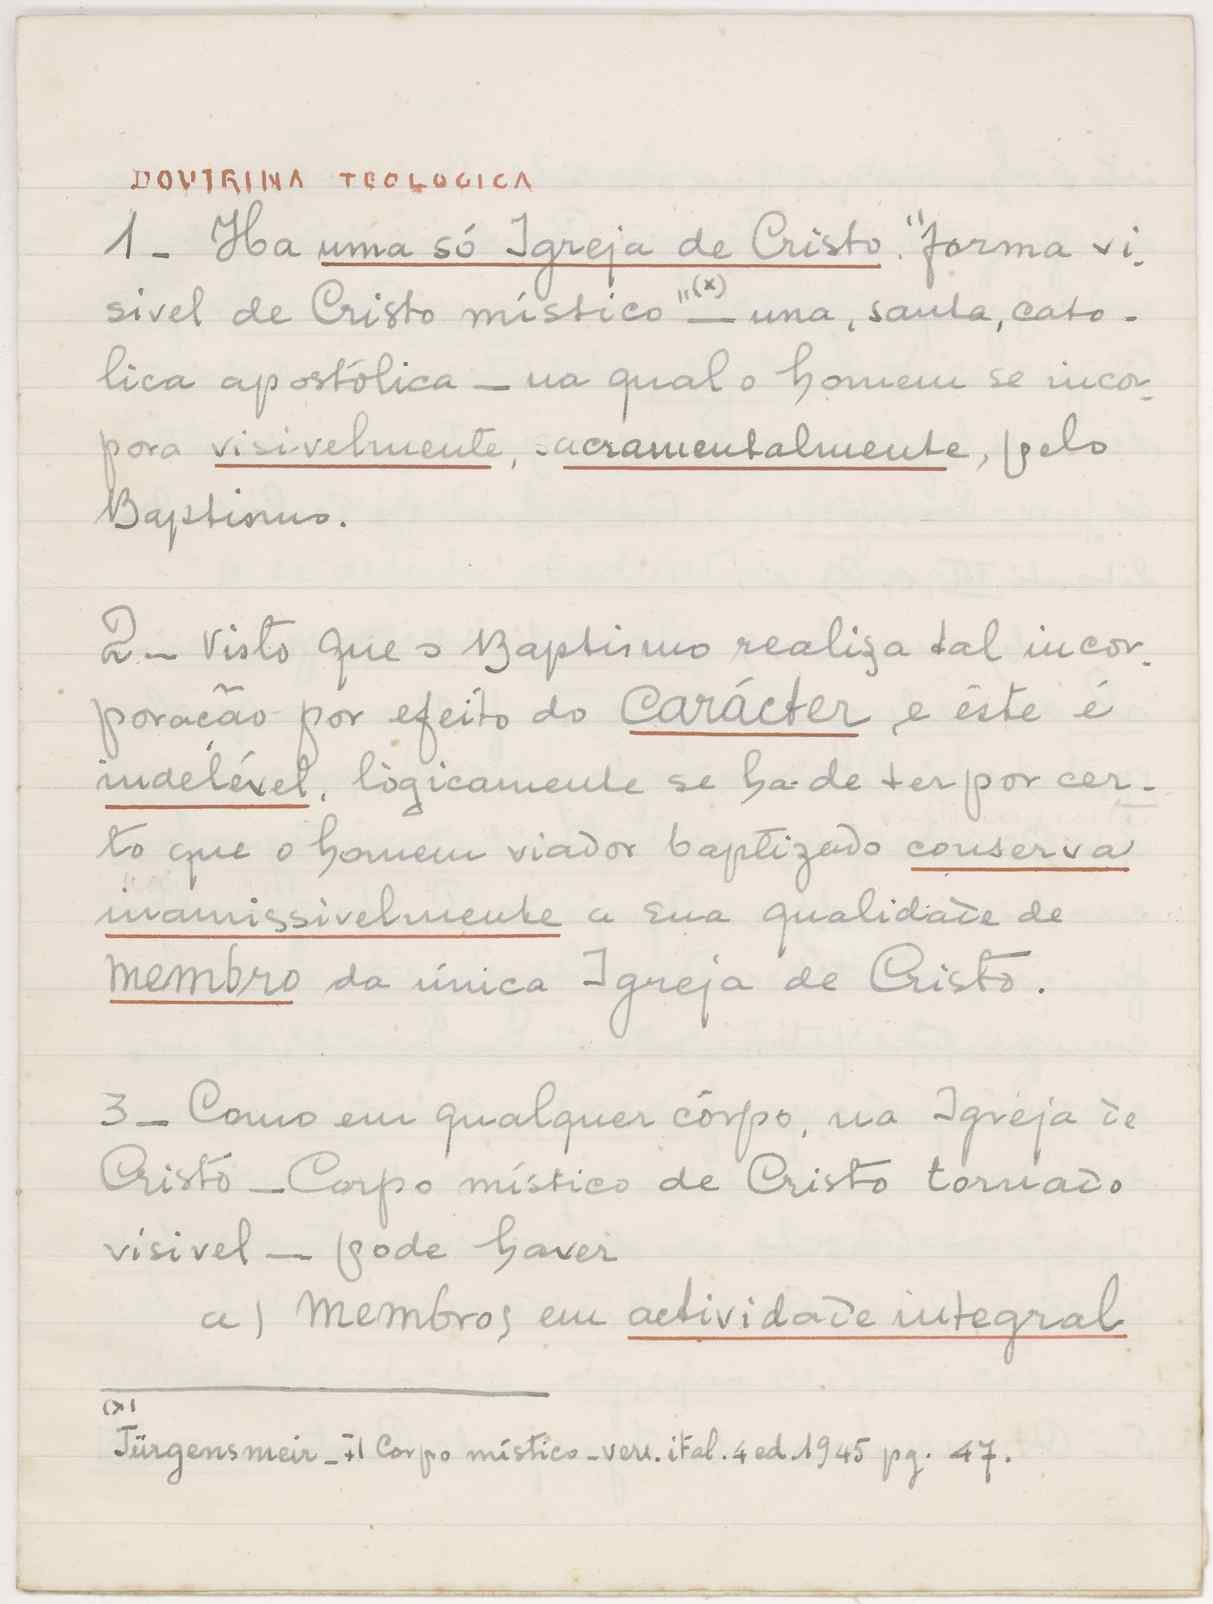 DOUTRINA TEOLOGICA
1 - Ha uma só Igreja de Cristo. "forma vi-
sivel de Cristo místico" (x) — una, santa, cato-
lica apostólica — na qual o homem se incor-
pora visivelmente, sacramentalmente, pelo
Baptismo.
2 - Visto que o Baptismo realiza tal incor-
poração por efeito do carácter e êste é
indelével, lògicamente se ha-de ter por cer-
to que o homem viador baptizado conserva
inamissivelmente a sua qualidade de
membro da única Igreja de Cristo.
3 - Como em qualquer côrpo, na Igreja de
Cristo — Corpo místico de Cristo tornado
vísivel — pode haver
a) Membros em actividade integral
(x)
Jürgensmeir - Il Corpo místico - vers. ital. 4 ed. 1945 pg. 47.